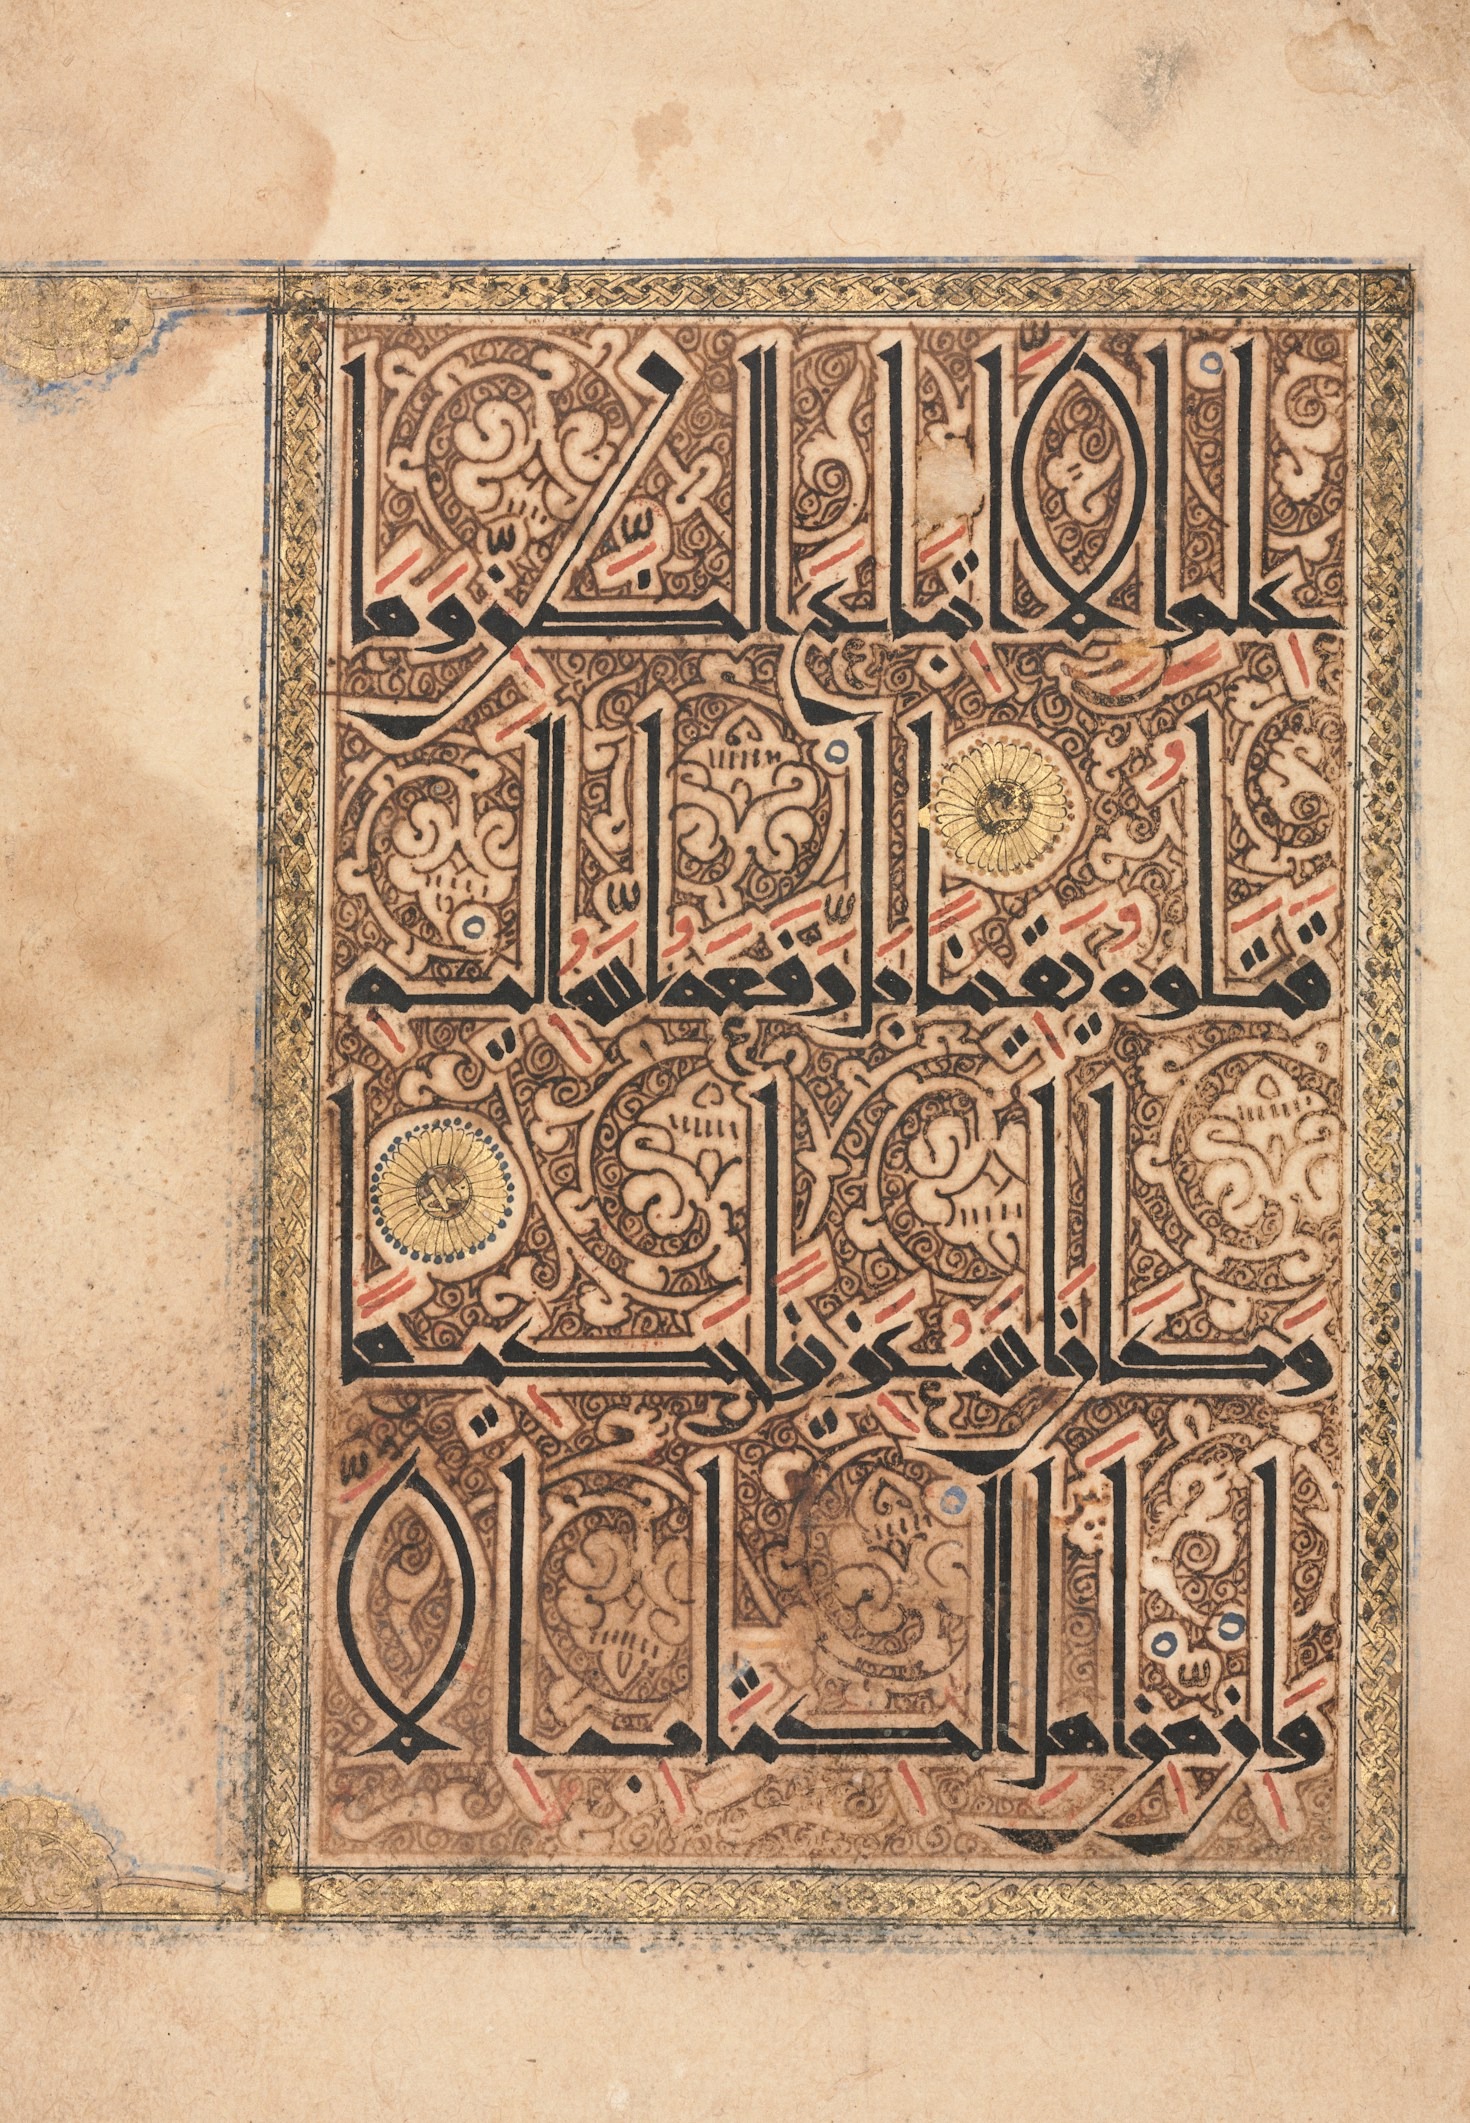 علم الا اتباع الظن وما
قتلوه يقينا بل رفعه الله اليه
وكان الله عزيزا حكيما
وان من اهل الكتاب الا